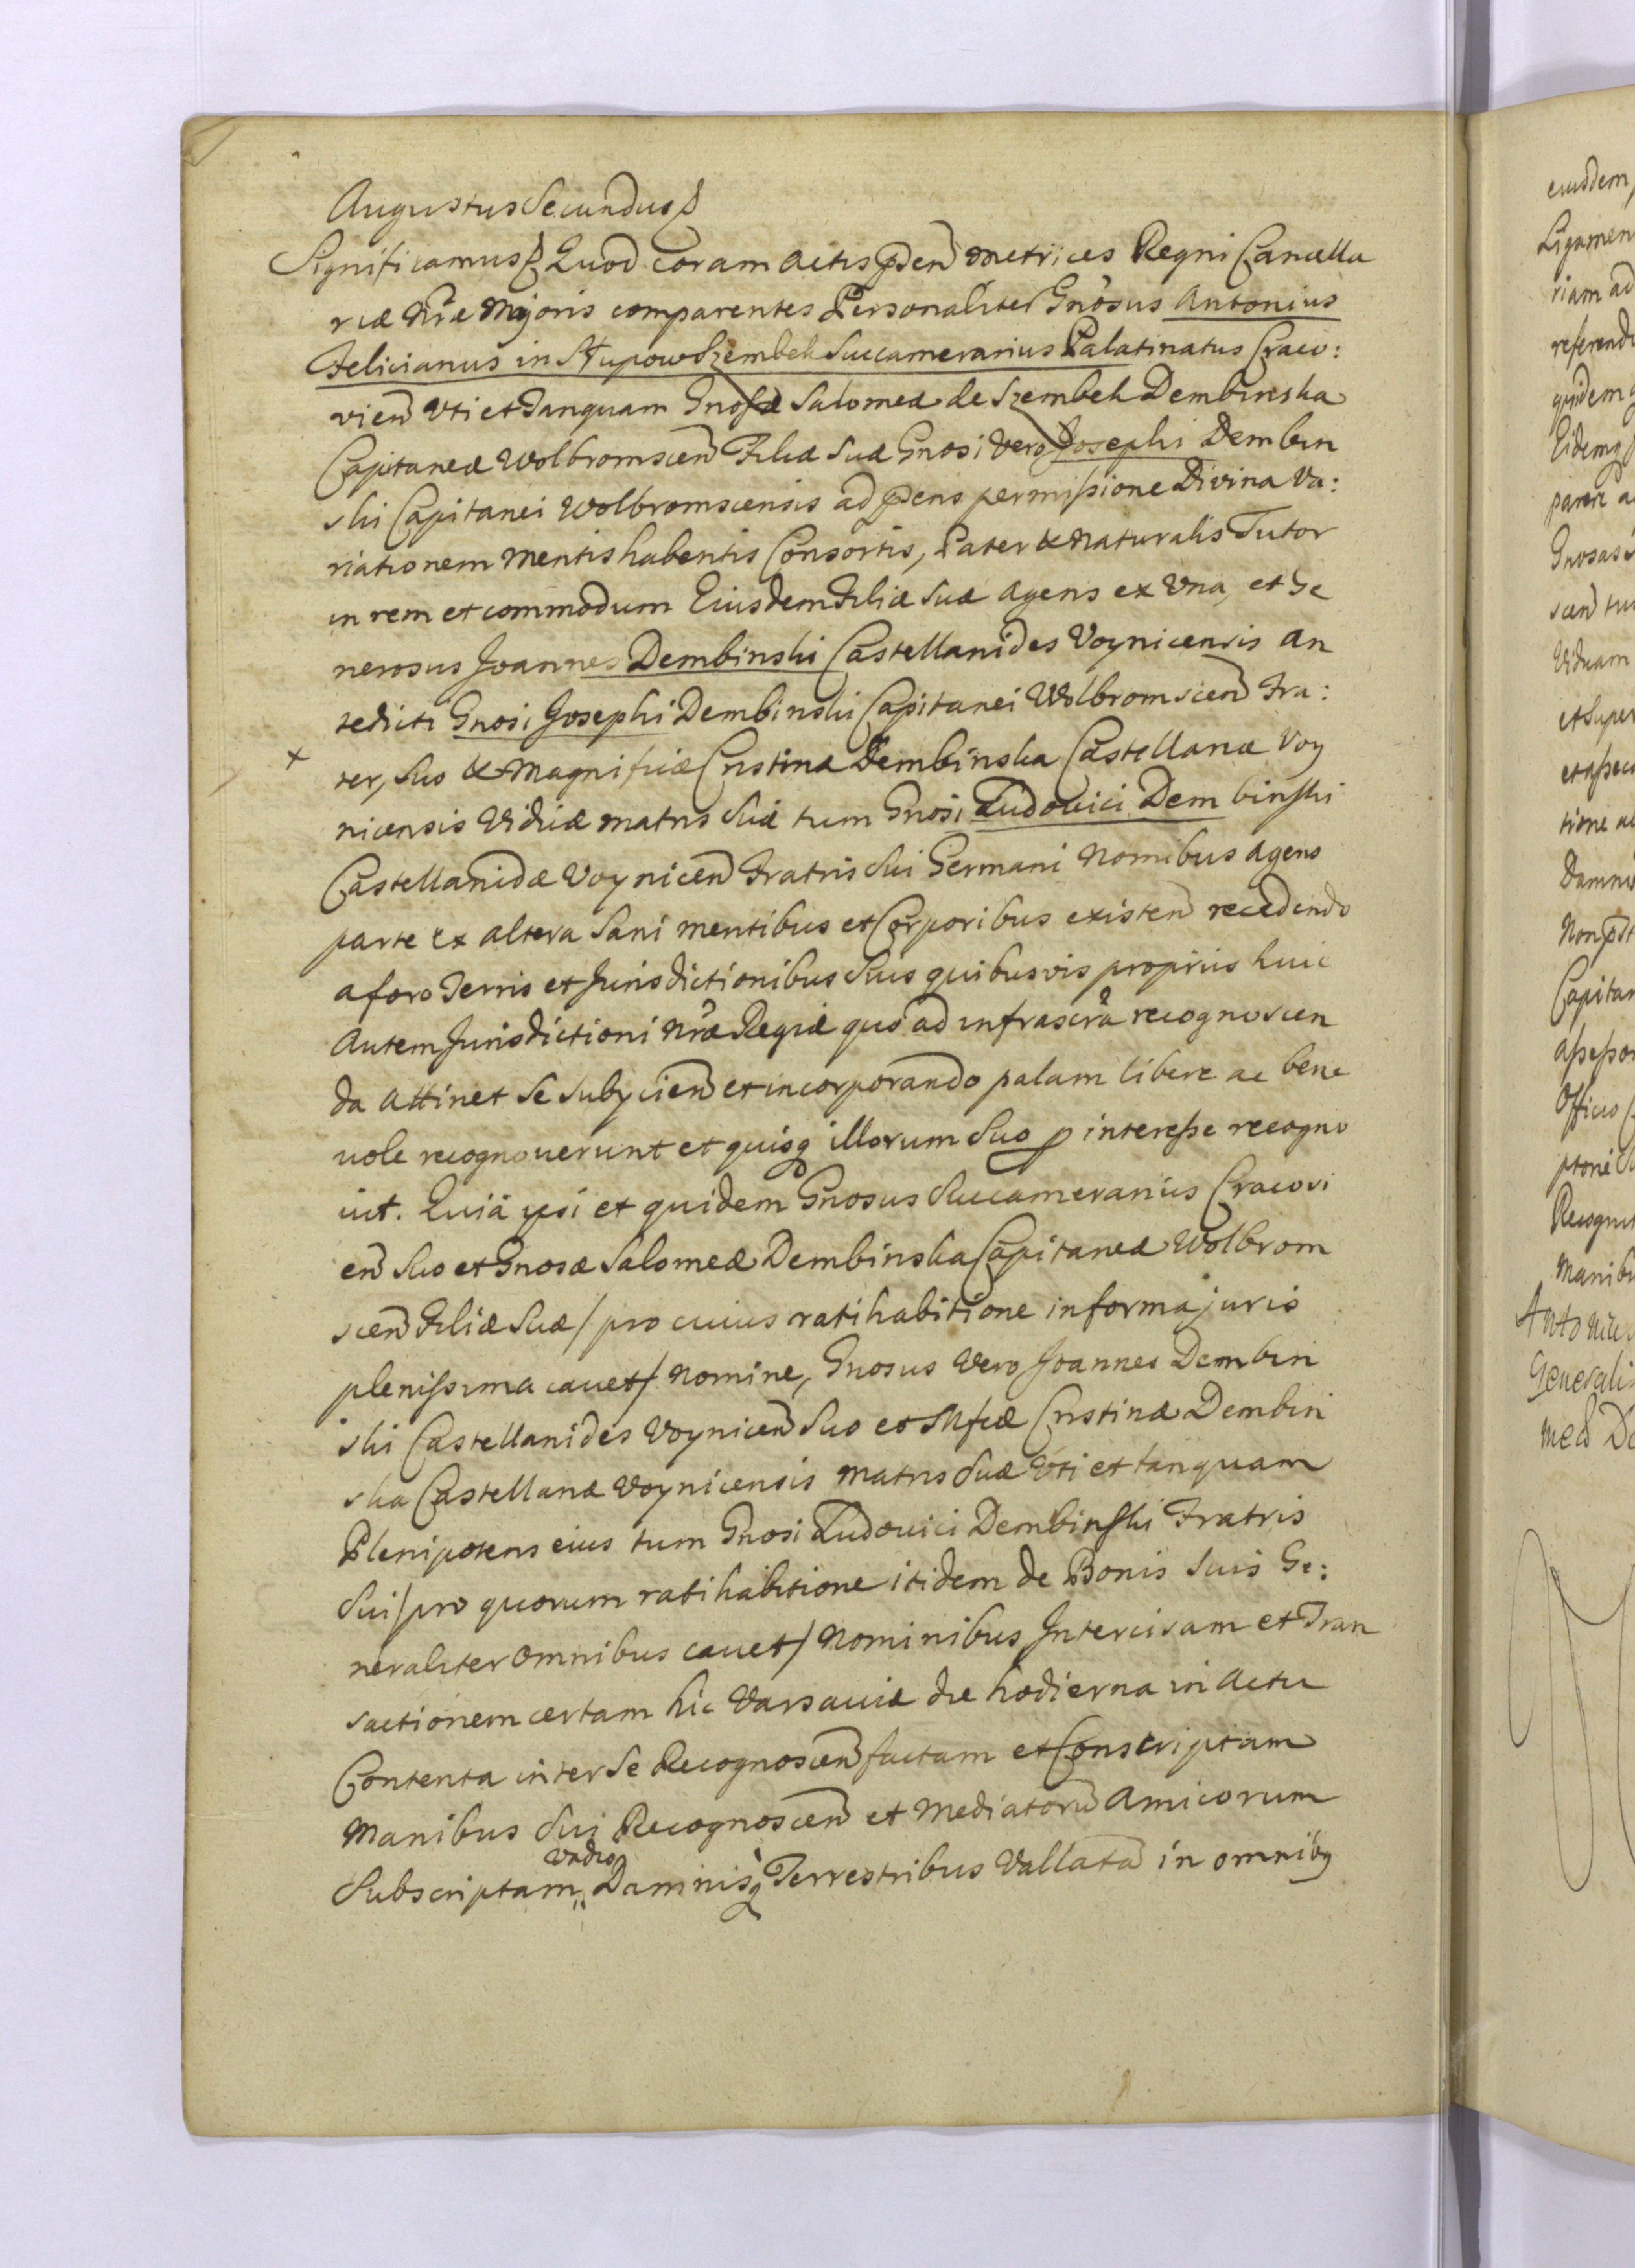 Augustus Secundus &
Significamus & Quod coram actis pñden Metrices Regni Cancella
riæ Nræ Majoris comparentes Personaliter Gnosus Antonius
Felicianus in Słupow Szembek Succamerarius Palatinatus Craco:
vien Uti et Tanquam Gnosæ Salomeæ de Szembek Dembinska
Capitaneæ Wolbromscen Filiæ Suæ Gnosi Vero Josephi Dembin
ski Capitanei Wolbromscensis ad pñdens permissione Divina Va:
riationem Mentis habentis Consortis, Pater & Naturalis Tutor
in rem et commodum Eiusdem Filiæ Suæ Agens ex Una, et Ge
nerosus Joannes Dembinski Castellanides Voynicensis an
tedicti Gnosi Josephi Dembinski Capitanei Wolbromscen Fra:
+ ter, Suo & Magnificæ Cristina Dembinska Castellanæ Voy
nicensis Viduæ Matris Suæ tum Gnosi Ludovici Dembinski
Castellanidæ Voynicen Fratris Sui Germani Nomibus Agens
parte ex altera Sani mentibus et Corporibus existen recedendo
a foro Terris et Jurisdictionibus Suis quibusvis propriis huic
Autem Jurisdictioni Nræ Regiæ quo ad infrascra recognoscen
da Attinet Se Subycien et incorporando palam libere ac bene
uole recognouerunt et quisq illorum Suo p interesse recogno
uit. Quia ipsi et quidem Gnosus Succamerarius Cracovi
en Suo et Gnosæ Salomeæ Dembinska Capitaneæ Wolbrom
scen Filiæ Suæ / pro cuius ratihabitione in forma juris
plenissima cauet / Nomine, Gnosus Vero Joannes Dembin
ski Castellanides Voynicen Suo et Mficæ Cristinæ Dembin
ska Castellanæ Voynicensis Matris Suæ Uti et tanquam
Plenipotens eius tum Gnosi Ludouici Dembinski Fratris
Sui / pro quorum ratihabitione itidem de Bonis Suis Ge:
neraliter Omnibus cauet / Nominibus Intercisam et Tran
sactionem certam hic Varsauiæ die hodierna in Actu
Contenta inter Se Recognoscen factam et Conscriptam
Manibus Sui Recognoscen et Mediatorũ Amicorum
vadio
Subscriptam,, Daminisq Terrestribus Vallatã in omnibq
eiusdem
Ligamen
riam ad
referend
quidem
Eidemq
parere a
Gnosas
scen tu
Viduam
et Super
tione a
Damni
Non
Capitan
Assessor
Officio
Recogni
Manibu
Antoniu
Generali
med De